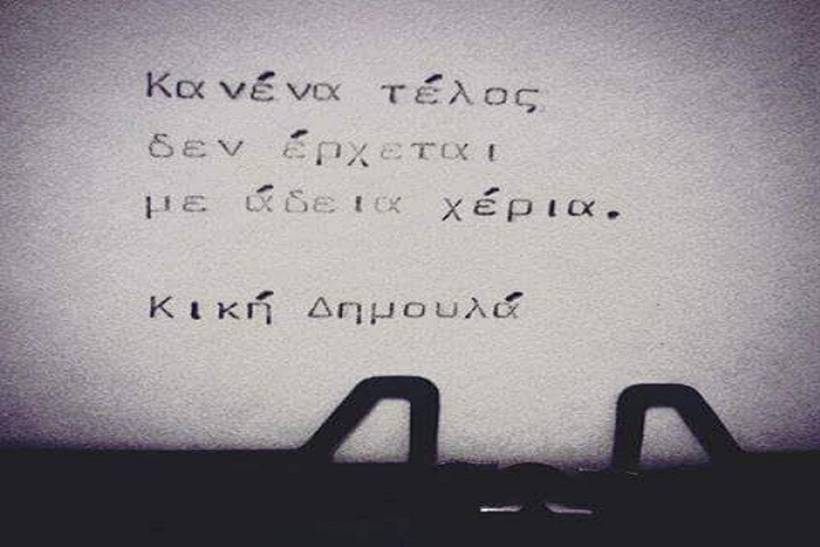 Κανένα τέλος
δεν έρχεται
με άδεια χέρια.
Κική Δημουλά